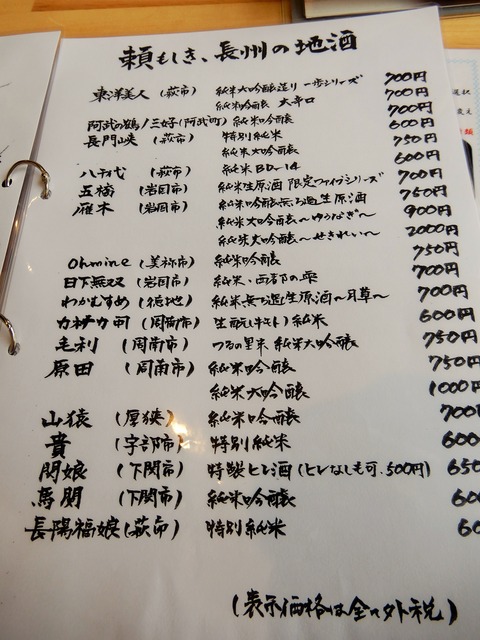 頼もしき、長州の地酒
東洋美人 (萩市) 純米大吟醸造り 一歩シリーズ 700円
純米吟醸 大辛口 700円
阿武の鶴/三好(阿武町) 純米吟醸 700円
長門峡 (萩市) 特別純米 600円
純米大吟醸 750円
八千代 (萩市) 純米BD-14 600円
五橋 (岩国市) 純米生原酒 限定ファイブシリーズ 700円
雁木 (岩国市) 純米吟醸無ろ過生原酒 750円
純米大吟醸〜ゆうなぎ〜 900円
純米大吟醸〜せきれい〜 2000円
Ohmine (美祢市) 純米吟醸 750円
日下無双 (岩国市) 純米、西都の雫 700円
わかむすめ (徳地) 純米無ろ過生原酒〜月草〜 700円
カネナカ (周南市) 生酛(キモト)純米 600円
毛利 (周南市) つるの里米 純米大吟醸 750円
原田 (周南市) 純米吟醸 750円
純米大吟醸 1000円
山猿 (厚狭) 純米吟醸 700
貴 (宇部市) 特別純米 600
関娘 (下関市) 特製ヒレ酒(ヒレなしも可.500円) 650
馬関 (下関市) 純米吟醸 60
長陽福娘(萩市) 特別純米 60
(表示価格は全て外税)